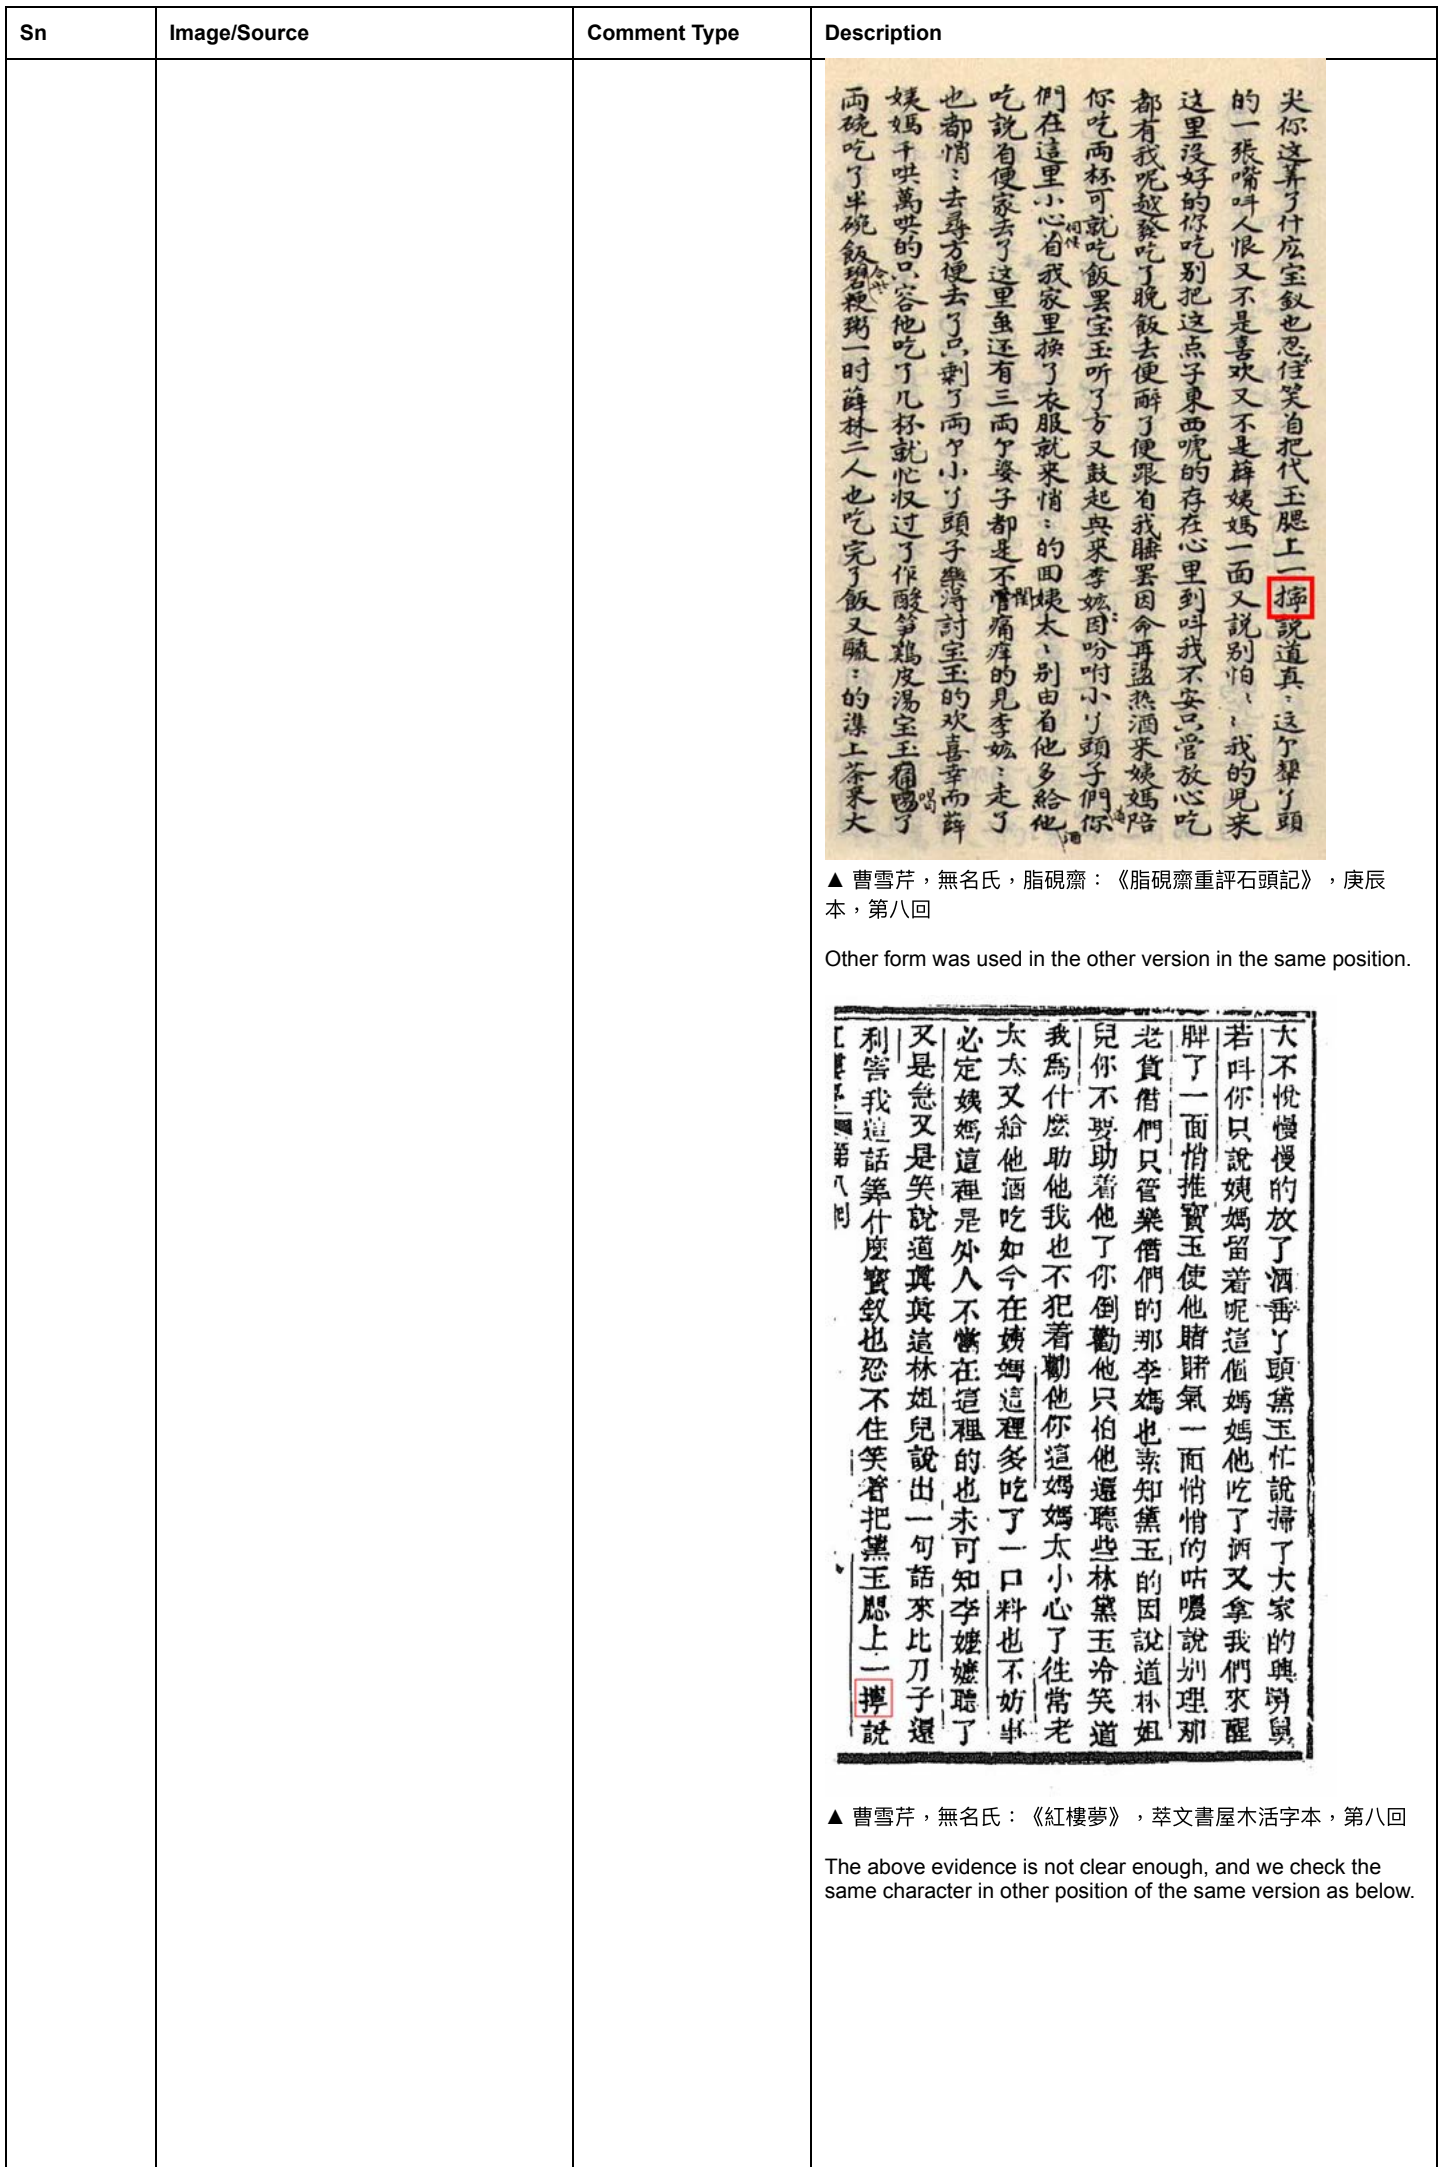 Sn
Image/Source
Comment Type
Description
尖你这筭了什庅宝釵也忍住笑自把代玉腮上一擰說道真：这个顰丫頭
的一張嘴呌人恨又不是喜欢又不是薛姨媽一面又說别怕：：我的兒来
这里没好的你吃别把这点子東西唬的存在心里到呌我不安只管放心吃
都有我呢越發吃了晚飯去便醉了便跟自我睡罢因命再盪热酒来姨媽陪
你吃两杯可就吃飯罢宝玉听了方又鼓起興来李嬷因吩咐小丫頭子們你
們在這里小心自我家里換了衣服就来悄：的回姨太：别由自他多給他
吃說自便家去了这里虽还有三両个婆子都是不管痛痒的見李嬷：走了
也都悄：去尋方便去了只剩了両个小丫頭子樂得討宝玉的欢喜幸而薛
姨媽千哄萬哄的只容他吃了几杯就忙収过了作酸笋鷄皮湯宝玉痛喝了
両碗吃了半碗飯碧粳粥一时薛林二人也吃完了飯又釅：的潗上茶来大
▲ 曹雪芹，無名氏，脂硯齋：《脂硯齋重評石頭記》，庚辰
本，第八回
Other form was used in the other version in the same position.
大不悅慢慢的放了酒垂了頭黛玉忙說掃了大家的興舅舅
若呌你只說姨媽留着呢這個媽媽他吃了酒又拿我們來醒
脾了一面悄推寳玉使他賭賭氣一面悄悄的咕噥說别理那
老貨僭們只管樂僭們的那李媽也素知黛玉的因說道林姐
兒你不要助着他了你倒勸他只怕他還聽些林黛玉冷笑道
我爲什麽助他我也不犯着勸他你這媽媽太小心了徃常老
太太又給他酒吃如今在姨媽這裡多吃了一口料也不妨事
必定姨媽這裡是外人不當在這裡的也未可知李嬷嬷聽了
又是急又是笑說道眞眞這林姐兒說出一句話來比刀子還
利害我這話筭什麽寳釵也忍不住笑着把黛玉腮上一擰說
▲ 曹雪芹，無名氏：《紅樓夢》，萃文書屋木活字本，第八回
The above evidence is not clear enough, and we check the
same character in other position of the same version as below.